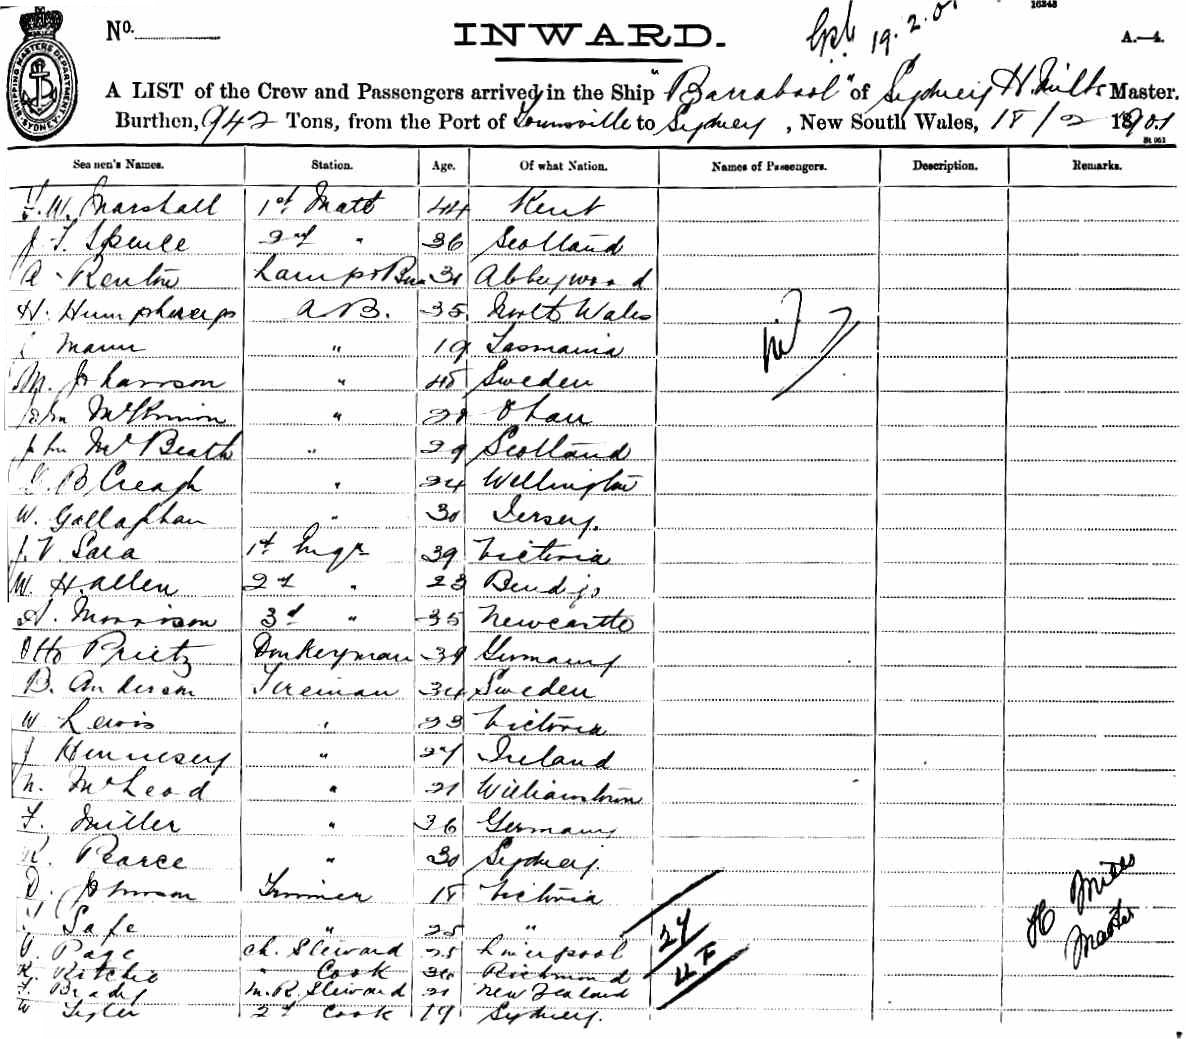 No.
INWARD.
19.2.01
16348
A.—4.
SHIPPING MASTERS DEPARTMENT SYDNEY
A LIST of the Crew and Passengers arrived in the Ship "Barrabool" of Sydney H. Mills Master.
Burthen, 942 Tons, from the Port of Townsville to Sydney, New South Wales, 18/2 1901
St 061
Seamen's Names. Station. Age. Of what Nation. Names of Passengers. Description. Remarks.
W. Marshall 1st Mate 44 Kent
J. T. Spence 2nd " 36 Scotland
A. Renton Lamps 31 Abbeywood
H. Humphreys A B. 35 North Wales
Mann " 19 Tasmania
M. Johannson " 45 Sweden
John McKinnon " Oban
John McBeath " 29 Scotland
B Creagh " 24 Wellington
W. Gallaghan " 30 Jersey.
J. V. Sara 1st Engr 39 Victoria
W. H. Allen 2d " 23 Bendigo
A. Morrison 3d " 35 Newcastle
Otto Prietz Donkeyman 39 Germany
B. Anderson Fireman 34 Sweden
W Lewis " 23 Victoria
J Hennesey " 27 Ireland
N. McLeod " 21 Williamstown
F. Miller " 36 Germany
R. Pearce " 30 Sydney.
D. Johnson Trimmer 18 Victoria
Safe " 25 "
Page Ch. Steward 25 Liverpool
R. Ritchie " Cook 34 Richmond
F. Brady M. R. Steward 21 New Zealand
W 2d Cook 19 Sydney.
nil
27
H Mills
Master